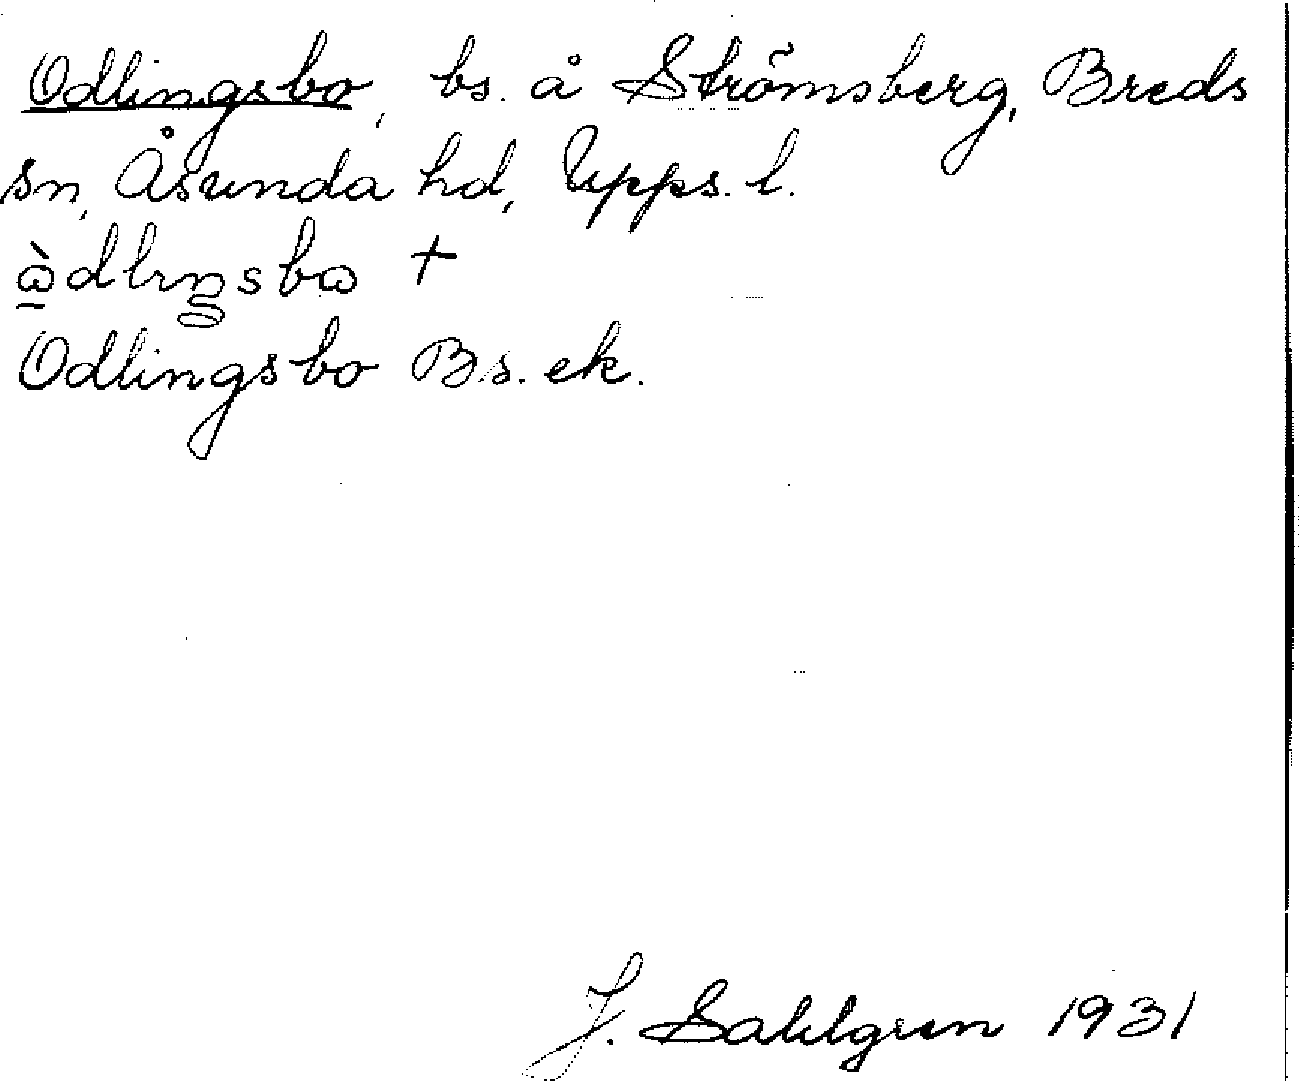 Odlingsbo, bs. å Strömsberg, Breds
sn, Åsunda hd, Upps. l.
Odlingsbo Bs. ek.
J. Sahlgren 1931